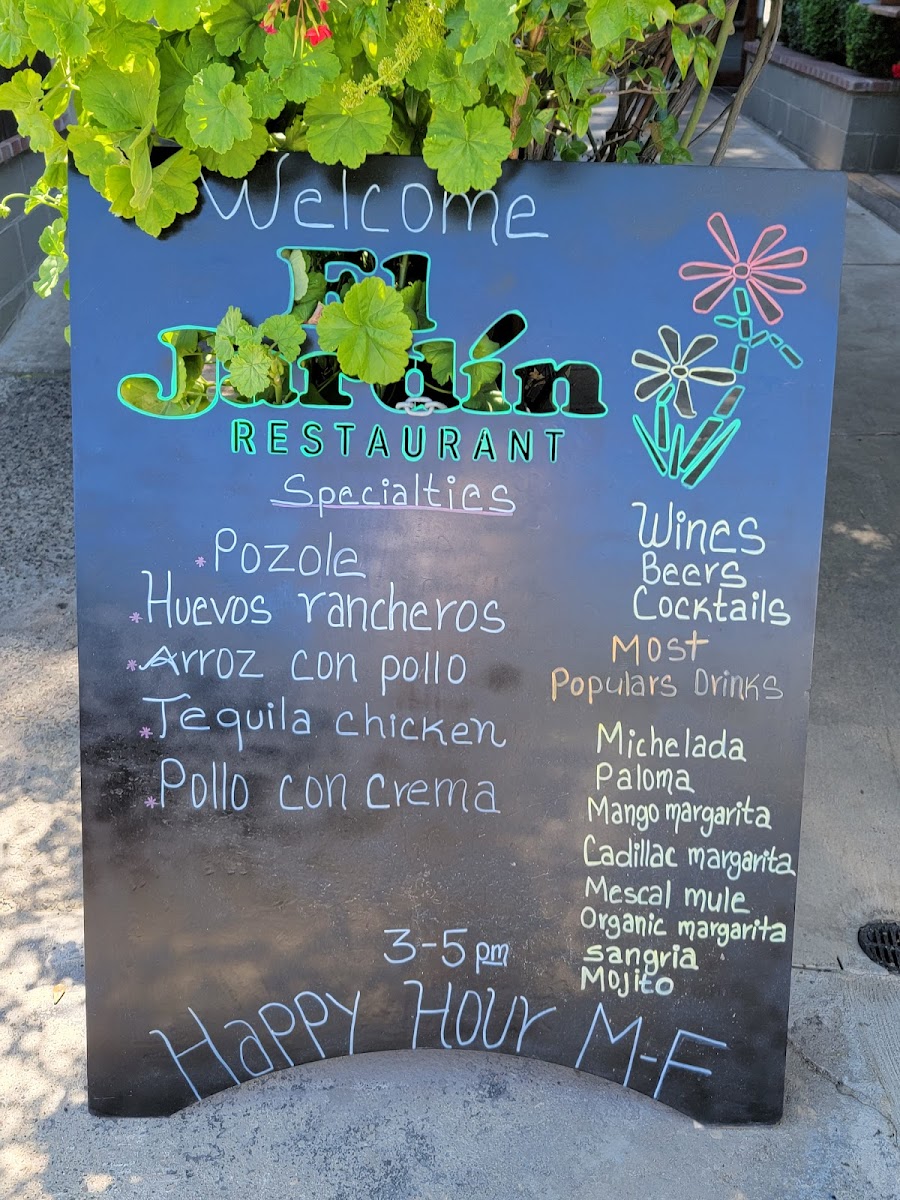 Welcome
El
Jardín
RESTAURANT
Specialties
* Pozole
* Huevos rancheros
* Arroz con pollo
* Tequila chicken
* Pollo con crema
Wines
Beers
Cocktails
Most
Populars Drinks
Michelada
Paloma
Mango margarita
Cadillac margarita
Mescal mule
Organic margarita
sangria
Mojito
3-5 pm
Happy Hour M-F